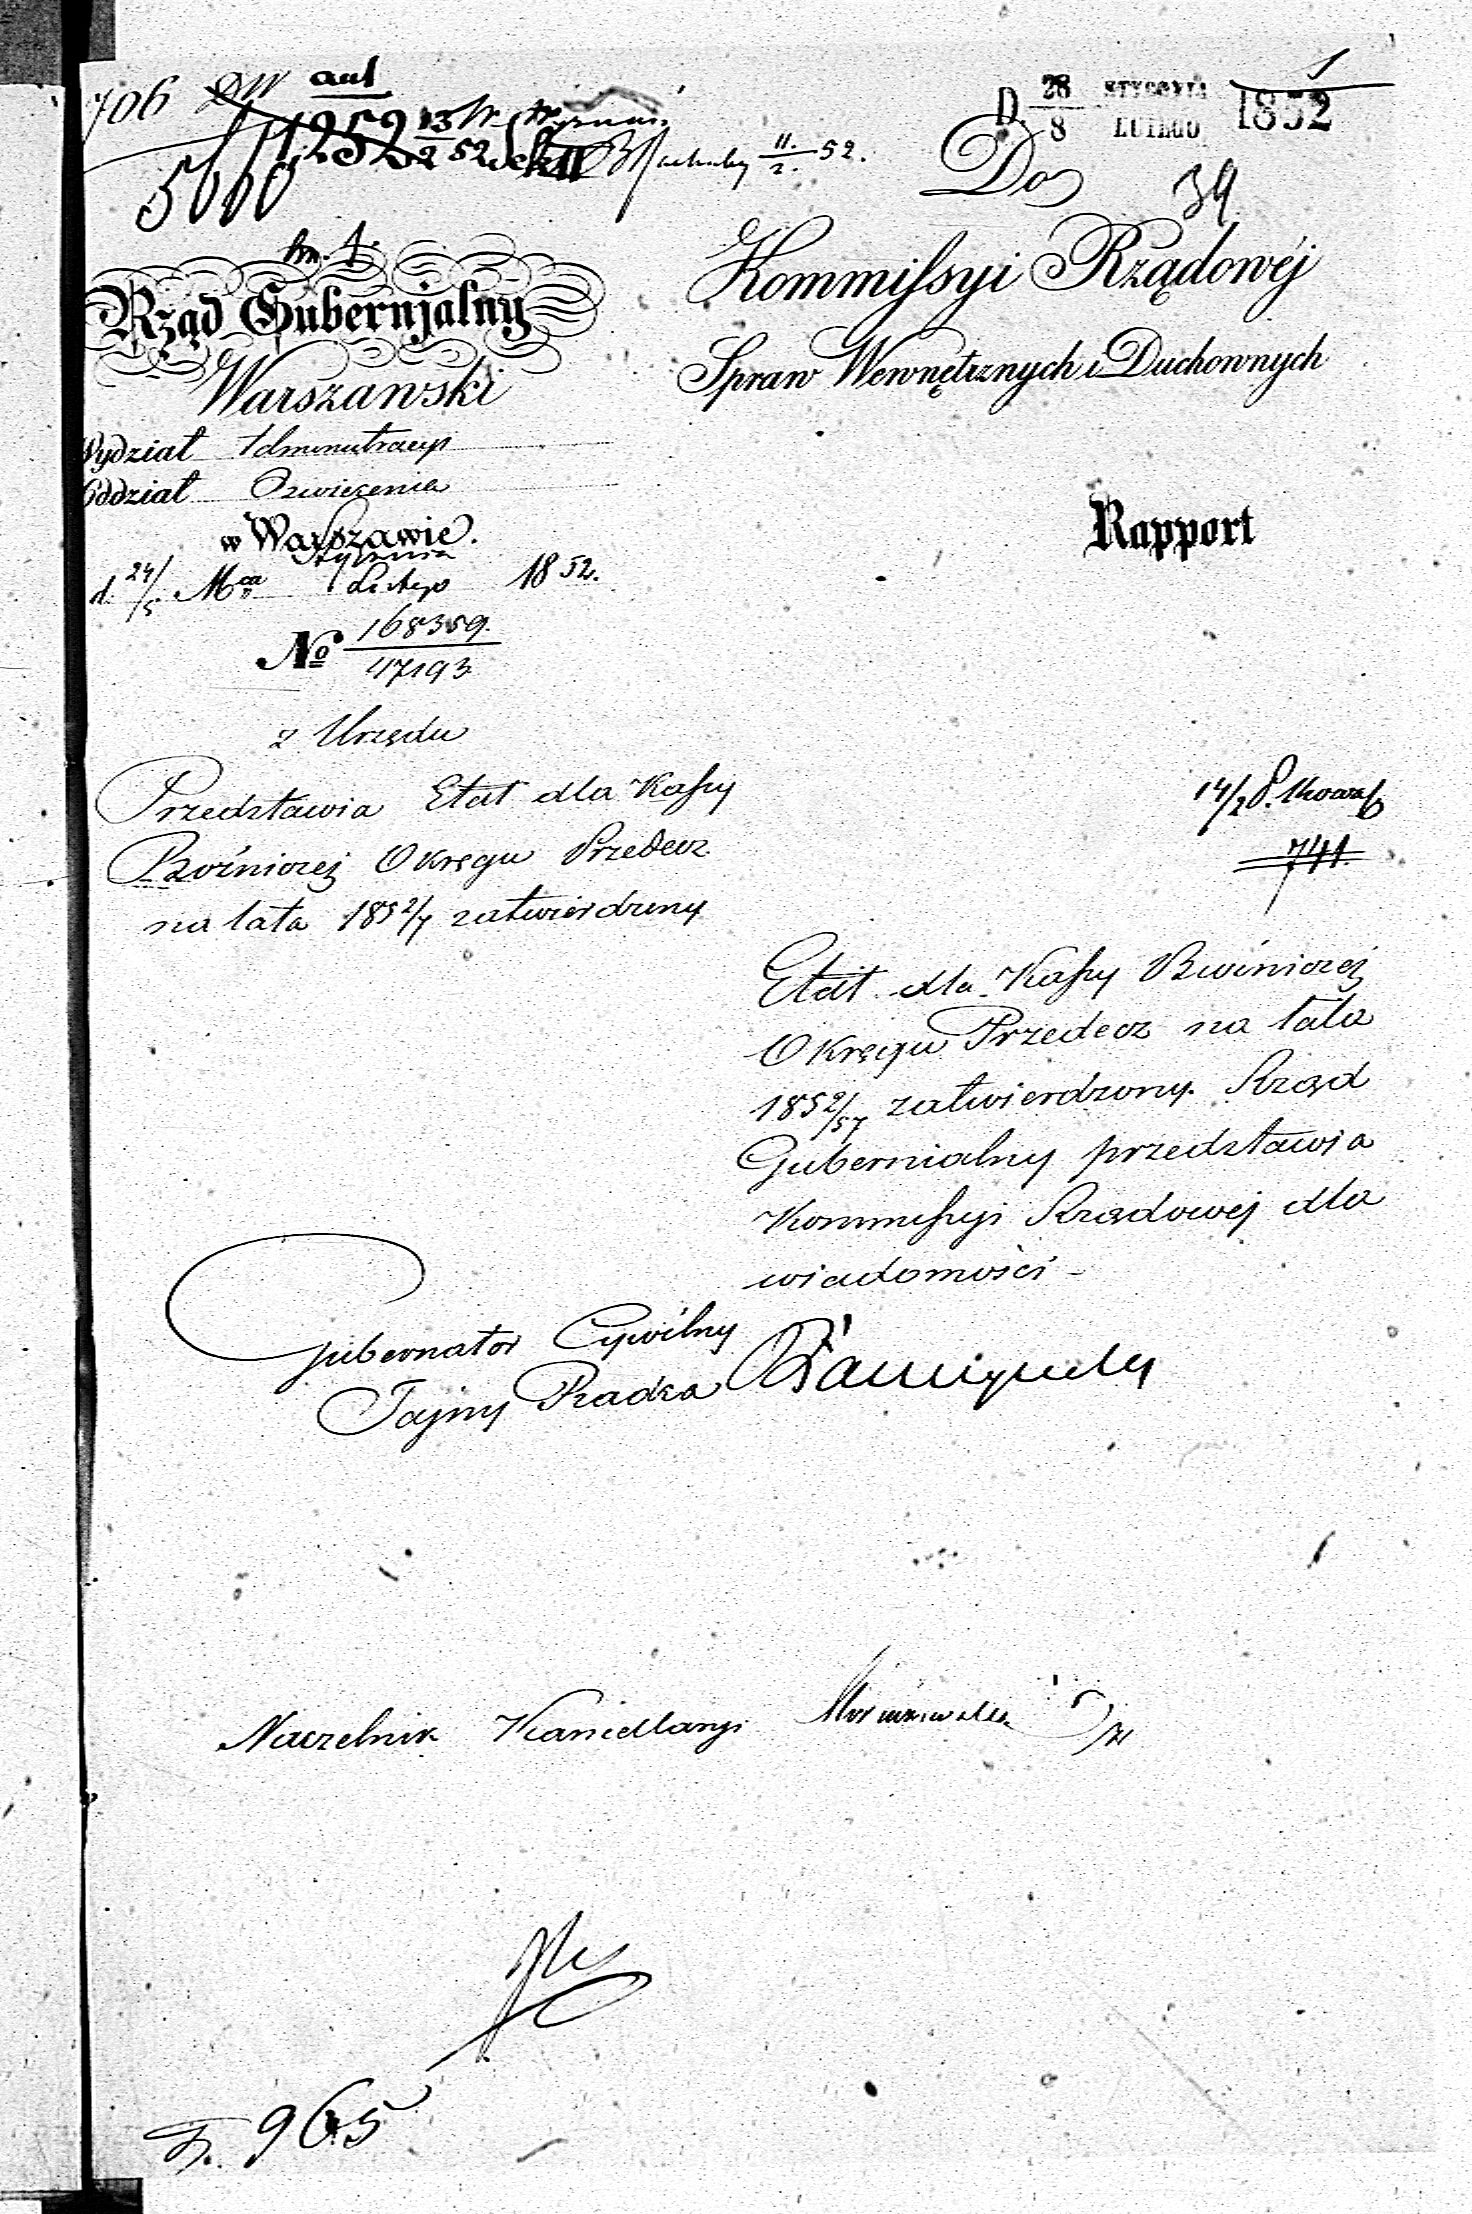 706
1252 13/2 52
5660
11./2. 52.
D. 28/8 STYCZNIA LUTEGO 1852
1
Do
39
Kommissyi Rządowéj
Spraw Wewnętrznych i Duchownych
Rząd Gubernjalny
Warszawski
Wydział Administracyi
Oddział Oświecenia
w Warszawie.
d. 24/5 Mca Stycznia Lutego 1852.
No 168359. / 47193
z Urzędu
Rapport
Przedstawia Etat dla Kassy
Bożniczej Okręgu Przedecz
na lata 1852/7 zatwierdzony
14/2
741.
Etat dla Kassy Bożniczej
Okręgu Przedecz na lata
1852/57 zatwierdzony. Rząd
Gubernialny przedstawia
Kommissyi Rządowej dla
wiadomości -
Gubernator Cywilny
Tajny Radca
Naczelnik Kancellaryi
965